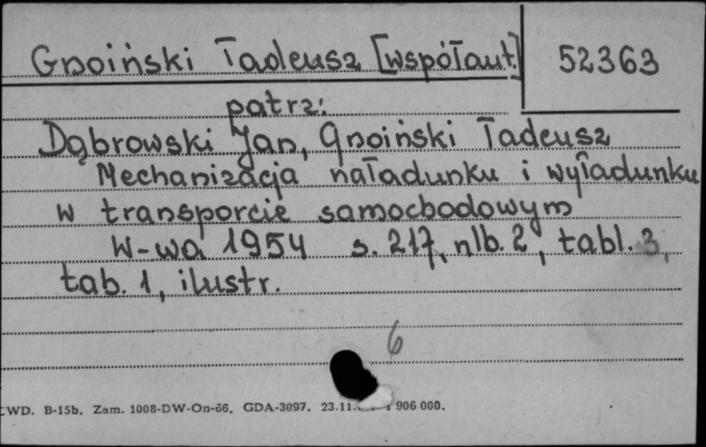 Gnoiński Tadeusz [współaut.] 52363
patrz:
Dąbrowski Jan, Gnoiński Tadeusz
Mechanizacja naładunku i wyładunku
w transporcie samochodowym
W-wa 1954 s. 217, nlb. 2, tabl. 3,
tab. 1, ilustr.
6
CWD. B-15b. Zam. 1008-DW-On-66. GDA-3097. 23.11. 1 906 000.